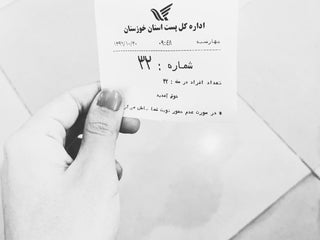 اداره کل پست استان خوزستان
چهارشنبه ۰۹:۴۸ ۱۳۹۶/۱۰/۲۰
شماره : ۳۲
تعداد افراد در صف : ۳۲
خوش آمدید
* در صورت عدم حضور نوبت شما